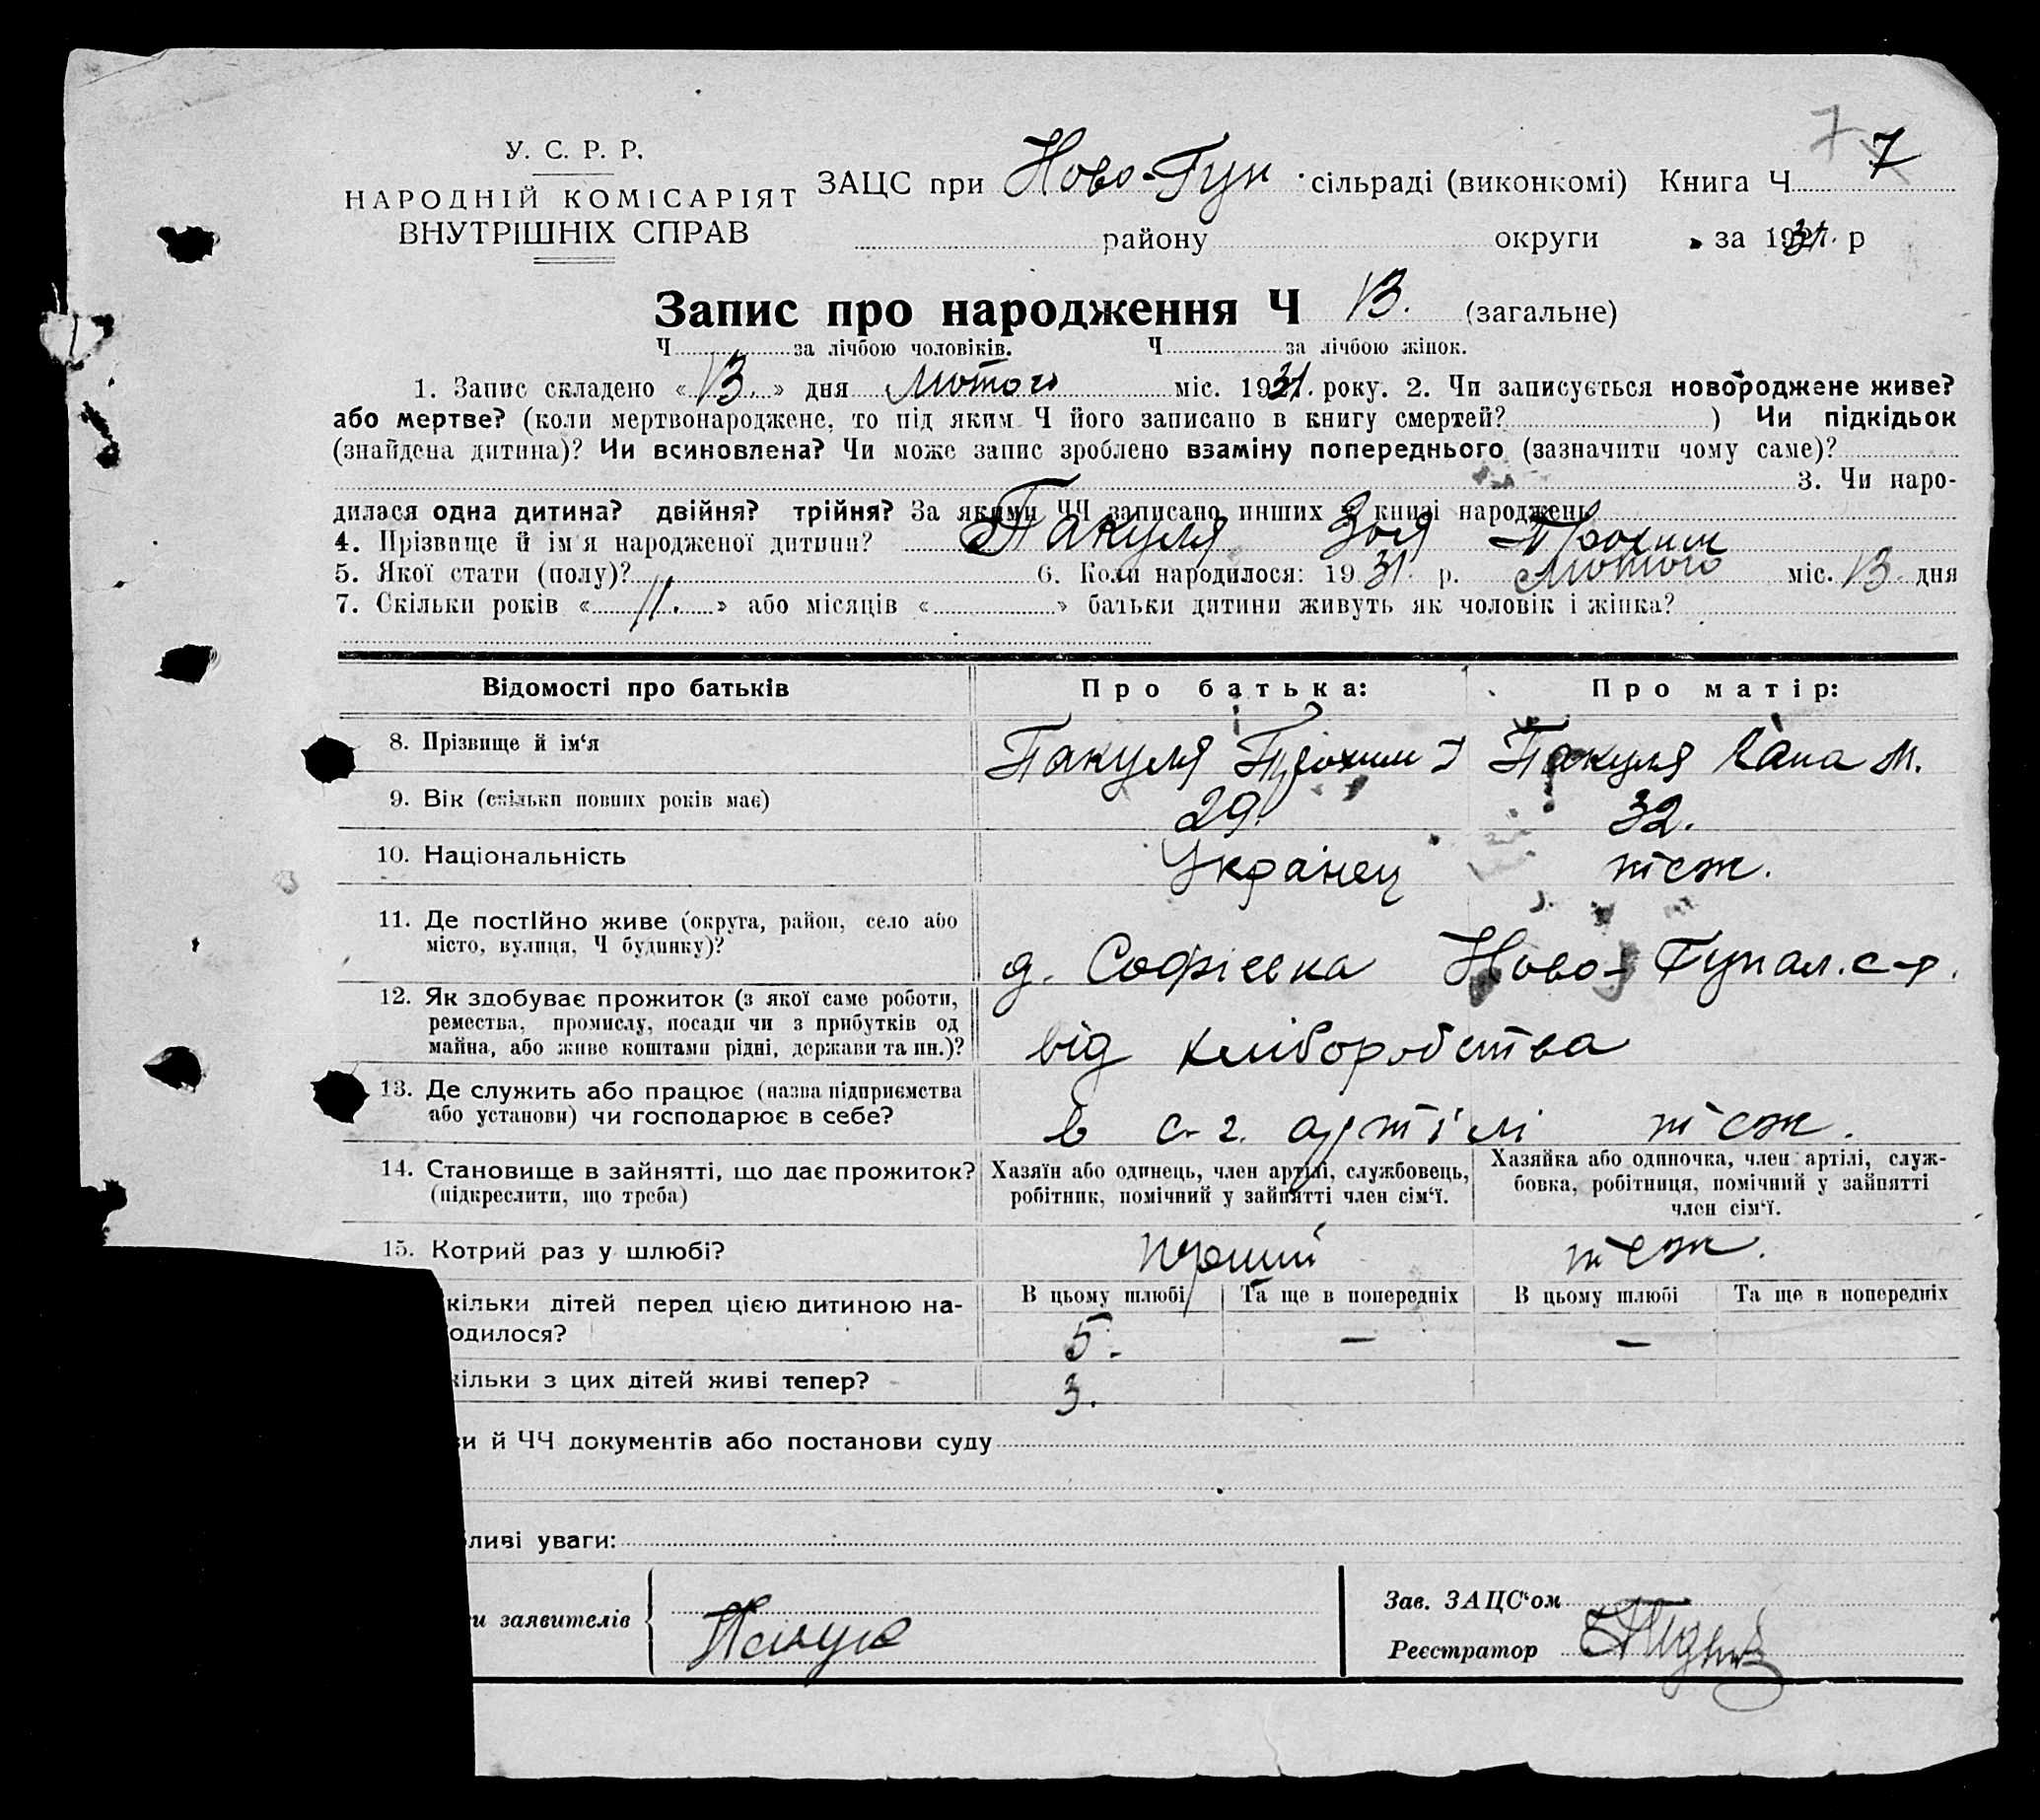 7
У. С. Р. Р.
НАРОДНІЙ КОМІСАРІЯТ
ВНУТРІШНІХ СПРАВ
ЗАЦС при Ново-Гуп сільраді (виконкомі) Книга Ч 7
району округи за 1931 р
Запис про народження Ч 13. (загальне)
Ч за лічбою чоловіків. Ч за лічбою жінок.
1. Запис складено «13.» дня Лютого міс. 1931. року. 2. Чи записується новороджене живе?
або мертве? (коли мертвонароджене, то під яким Ч його записано в книгу смертей? ) Чи підкідьок
(знайдена дитина)? Чи всиновлена? Чи може запис зроблено взаміну попереднього (зазначити чому саме)?
3. Чи наро-
дилася одна дитина? двійня? трійня? За якими ЧЧ записано инших у книзі народжень
4. Прізвище й ім'я народженої дитини? Пакуля Зоя Трохим
5. Якої стати (полу)? 6. Коли народилося: 1931. р. Лютого міс. 13. дня
7. Скільки років «11.» або місяців « » батьки дитини живуть як чоловік і жінка?
Відомості про батьків Про батька: Про матір:
8. Прізвище й ім'я Пакуля Трохим Пакуля М.
9. Вік (скільки повних років має) 29. 32.
10. Національність Українец теж.
11. Де постійно живе (округа, район, село або
місто, вулиця, Ч будинку)?
д. Софієвка Ново-Гупал. с-р.
12. Як здобуває прожиток (з якої саме роботи,
ремества, промислу, посади чи з прибутків од
майна, або живе коштами рідні, держави та ин.)?
від хліборобства
13. Де служить або працює (назва підприємства
або установи) чи господарює в себе?
в с-г. артілі теж.
14. Становище в зайнятті, що дає прожиток?
(підкреслити, що треба)
Хазяїн або одинець, член артілі, службовець,
робітник, помічний у зайнятті член сім'ї.
Хазяйка або одиночка, член артілі, служ-
бовка, робітниця, помічний у зайнятті
член сім'ї.
15. Котрий раз у шлюбі? перший теж.
кільки дітей перед цією дитиною на-
одилося?
В цьому шлюбі Та ще в попередніх В цьому шлюбі Та ще в попередніх
5. — —
кільки з цих дітей живі тепер? 3.
ви й ЧЧ документів або постанови суду
ливі уваги:
и заявителів
Зав. ЗАЦС'ом
Реєстратор